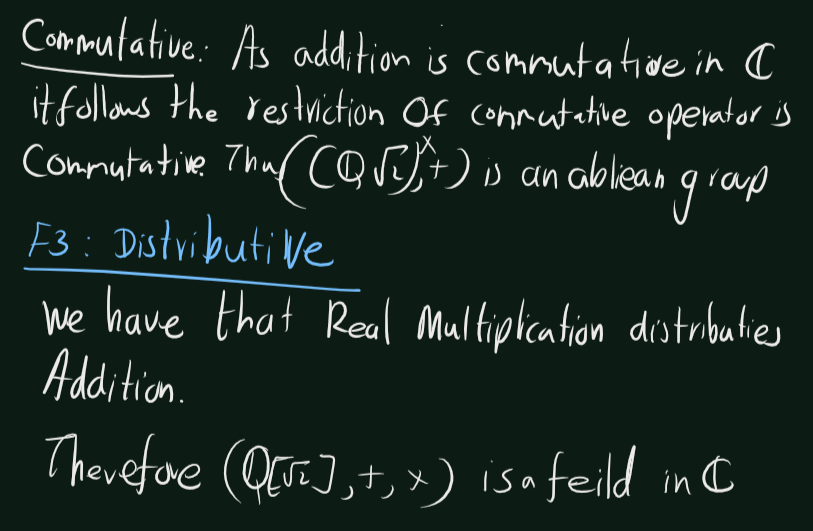 Commutative: As addition is commutative in ℂ
it follows the restriction Of commutative operator is
Commutative. Thus ((ℚ√2)ˣ,+) is an abliean group
F3: Distributive
we have that Real Multiplication distributies
Addition.
Therefore (ℚ[√2],+,×) is a feild in ℂ